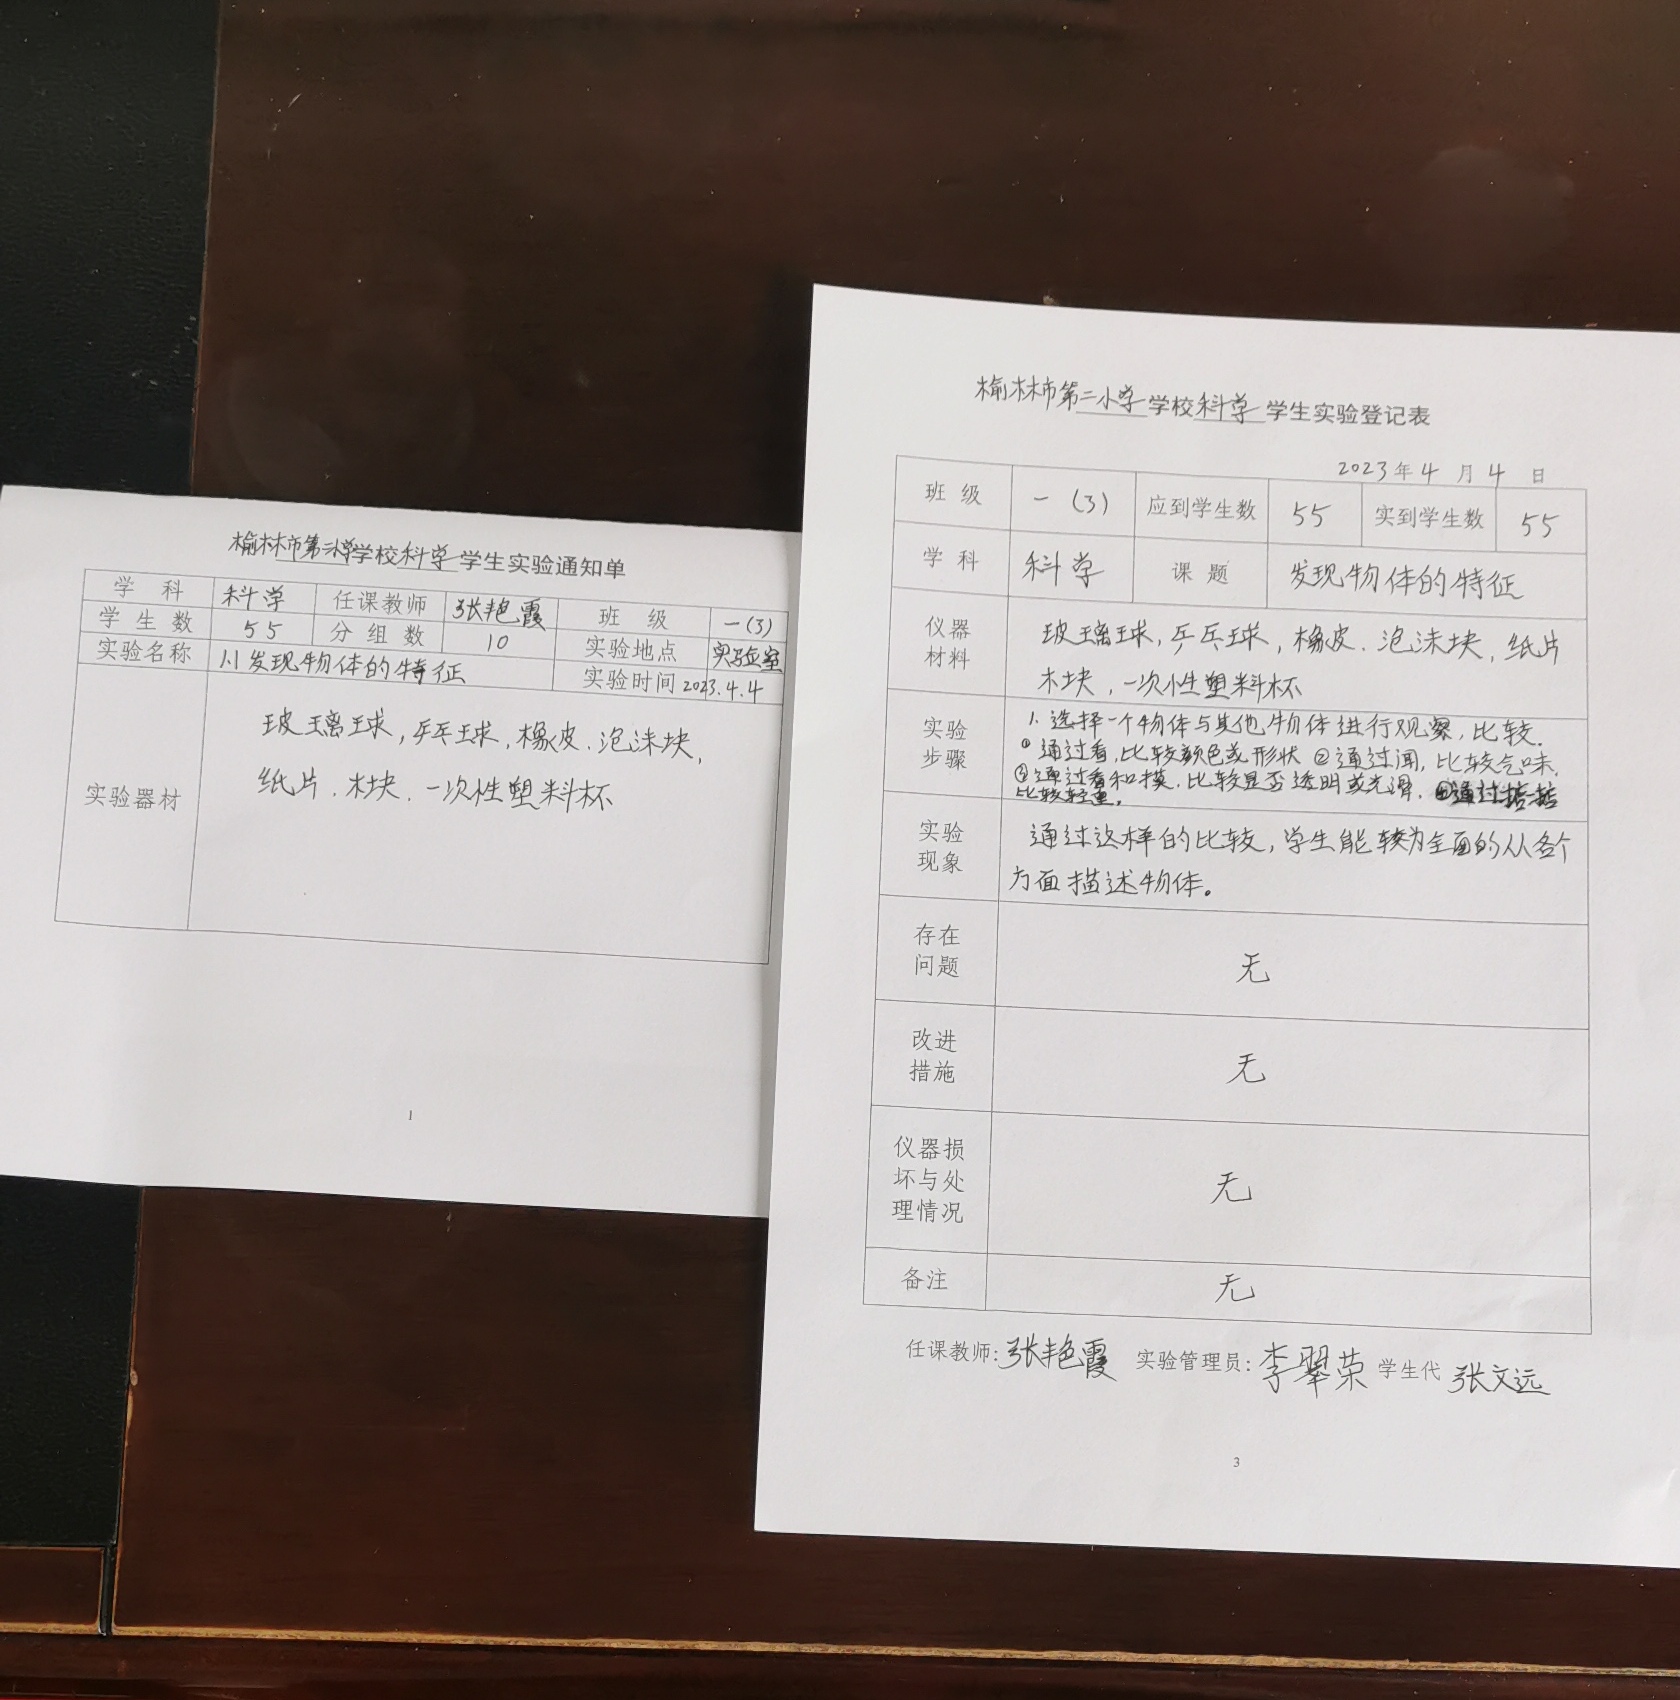 榆林市第二小学学校科学学生实验通知单
学 科 科学 任课教师 张艳霞 班 级 一(3)
学 生 数 55 分 组 数 10 实验地点 实验室
实验名称 发现物体的特征 实验时间 2023.4.4
实验器材
玻璃球,乒乓球,橡皮.泡沫块,
纸片.木块.一次性塑料杯
1
榆林市第二小学学校科学学生实验登记表
2023年4月4日
班 级 一(3) 应到学生数 55 实到学生数 55
学 科 科学 课 题 发现物体的特征
仪器
材料
玻璃球,乒乓球,橡皮.泡沫块,纸片
木块,一次性塑料杯
实验
步骤
1.选择一个物体与其他物体进行观察,比较.
①通过看,比较颜色或形状②通过闻,比较气味,
③通过看和摸.比较是否透明或光滑.④通过掂一掂
比较轻重.
实验
现象
通过这样的比较,学生能较为全面的从各个
方面描述物体。
存在
问题
无
改进
措施
无
仪器损
坏与处
理情况
无
备注 无
任课教师:张艳霞 实验管理员:李翠荣 学生代 张文远
3